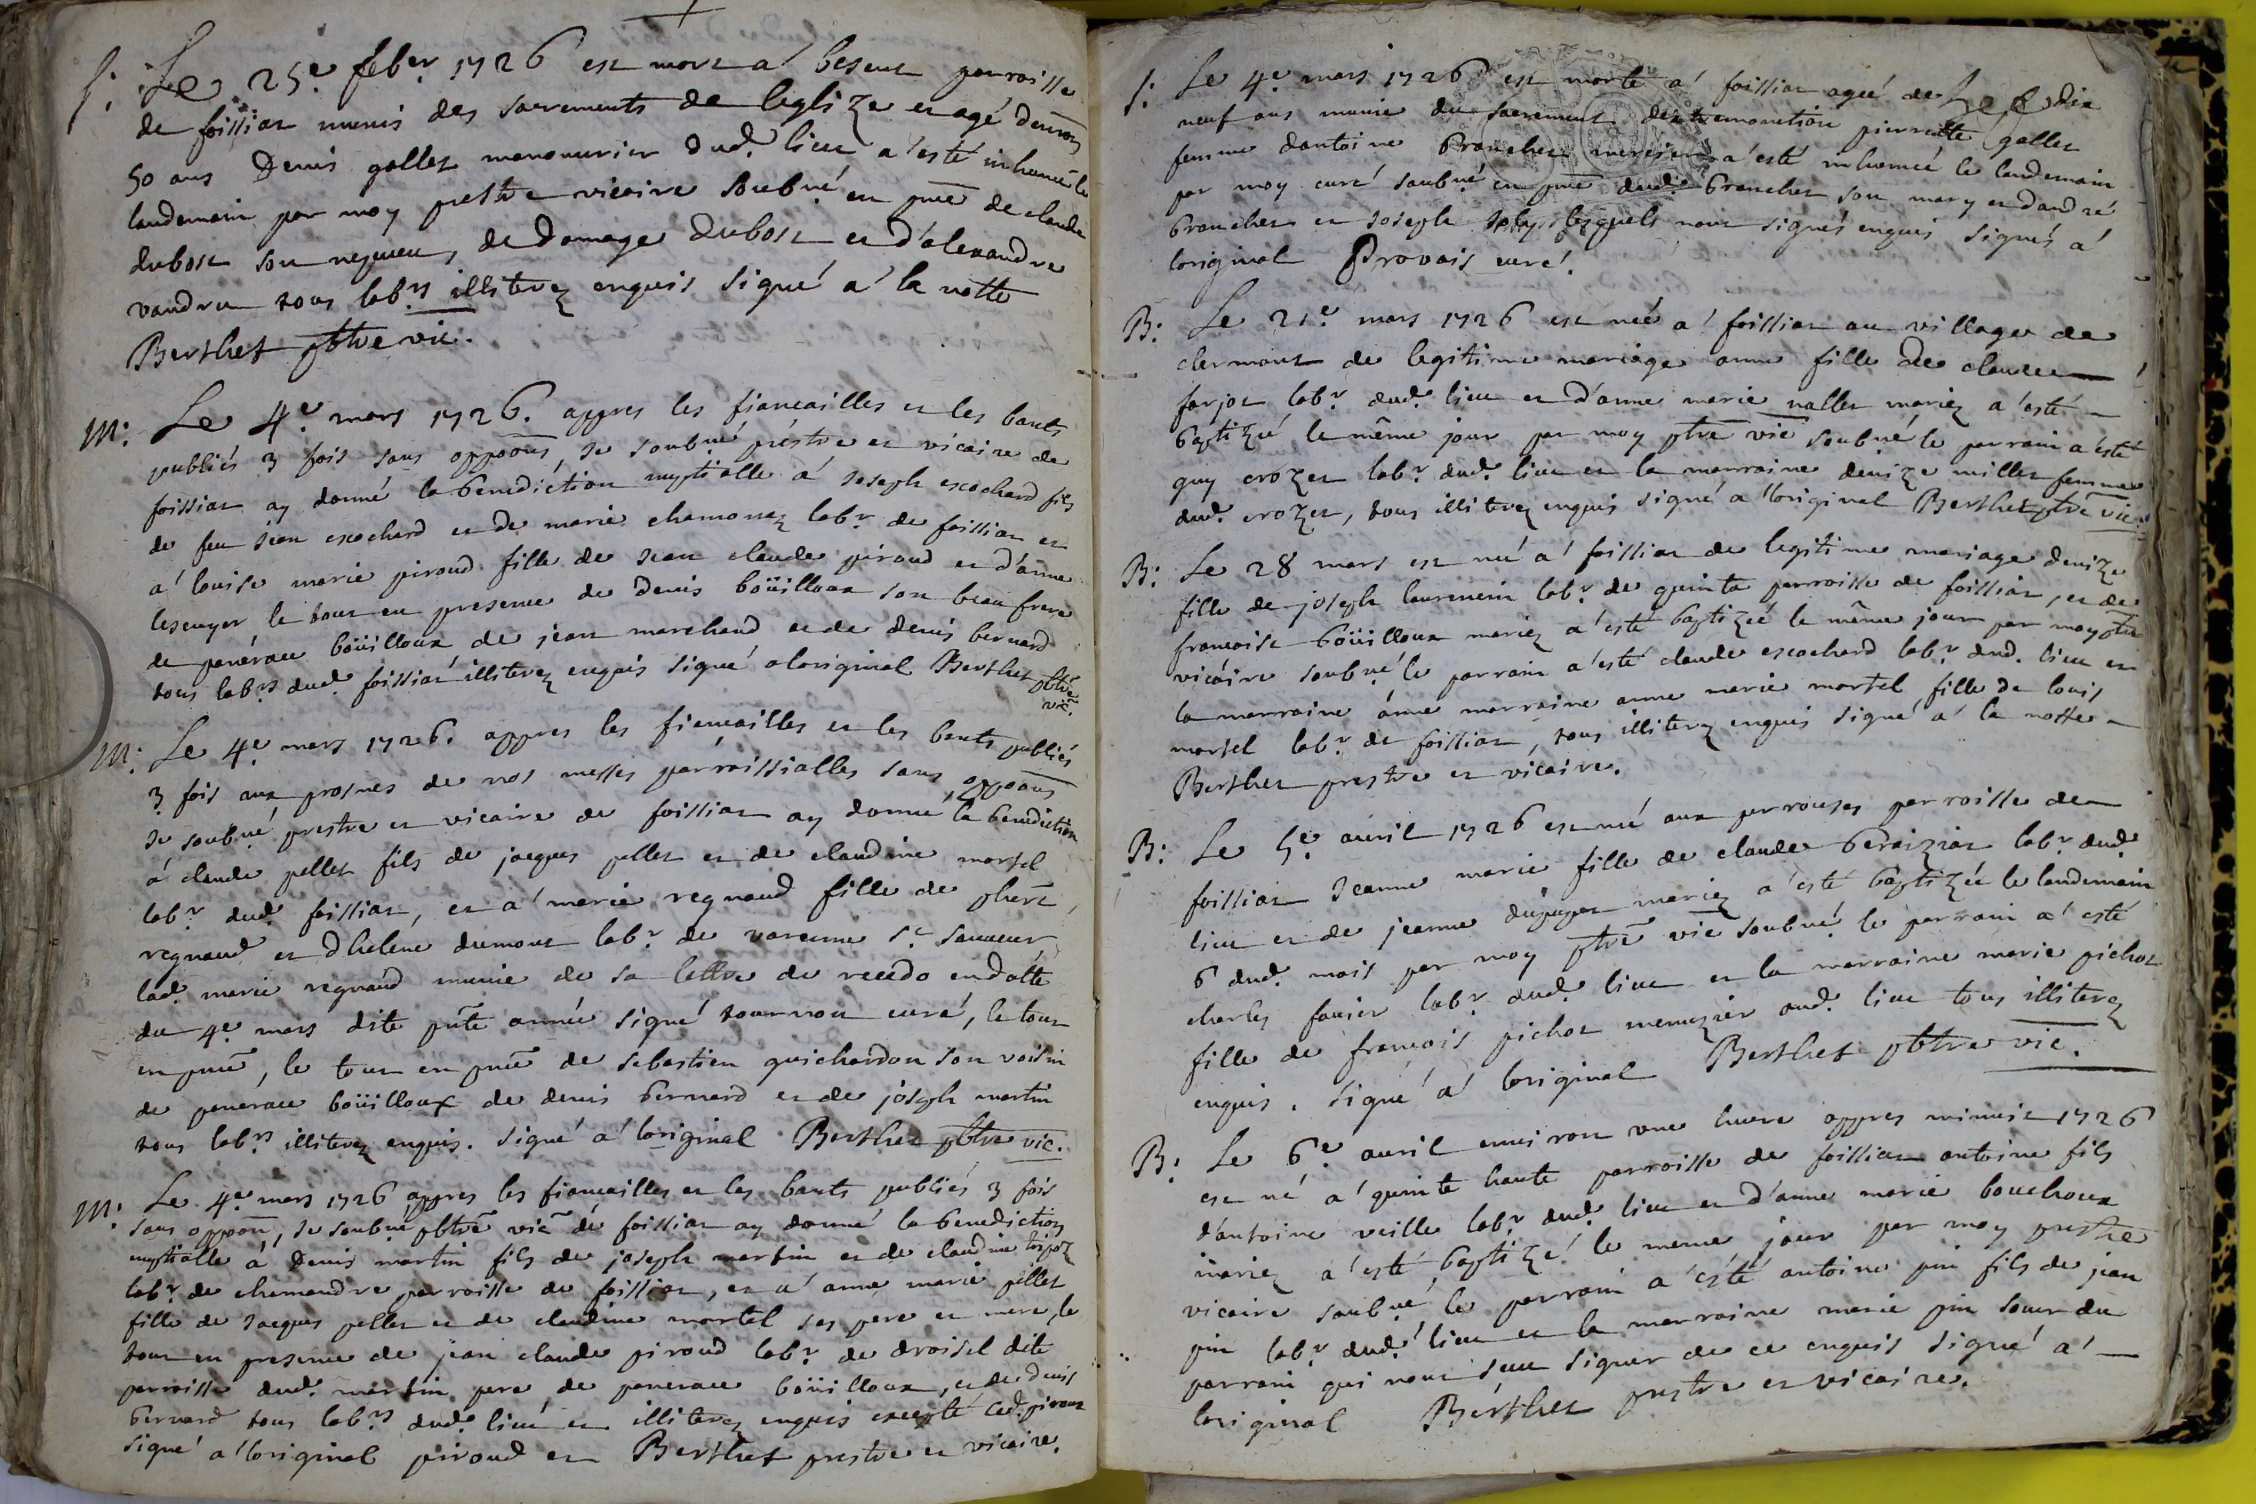 S: Le 25e feber 1726 est mort a besent parroisse
de foissiat munis des sacrements de leglize et agé denviron
50 ans Denis gallet manouvrier dud. lieu a'esté inhumé le
landemain par moy prestre vicaire soubné en pnce de claude
dubost son nepveu, de Domage Dubost et d'alexandre
vandru tous labrs illiterez enquis signé a' la notte
Berthet pbtre vic.
M: Le 4e mars 1726. appres les fiancailles et les bants
publiés 3 fois sans oppoons, Je soubné préstre et vicaire de
foissiat ay donné la benediction nuptialle a' Joseph escochard fils
de feu jean escochard et de marie chamonez labr de foissiat et
a' louise marie piroud fille de Jean claude piroud et d'anne
lescuyer le tout en presence de Denis boüilloux son beau frere
de panérace boüilloux de jean marchand et de denis bernard
tous labrs dud. foissiat illiterez enquis signé a loriginal Berthet pbtre
vic.
M: Le 4e mars 1726. appres les fiancailles et les bants publiés
3 fois aux prosnes de nos messes parroissialles sans oppoons
Je soubné prestre et vicaire de foissiat ay donné la benediction
a' claude pellet fils de jacques pellet et de claudine mortel
labr dud. foissiat, et a' marie regnaud fille de phert
regnaud et dhelene dumont labr de varenne St sauveur
lad. marie regnaud munie de sa lettre de recedo en datte
du 4e mars dite pnte année signé tournou curé, le tout
en pnce, le tout en pnce de sebastien guichardon son voisin
de panerace boüilloux de denis bernard et de joseph martin
tous labrs illiterez enquis. signé a' loriginal Berthet pbtre vic.
M: Le 4e mars 1726 appres les fiancailles et les bants publiés 3 fois
sans oppoon, Je soubné pbtre vic de foissiat ay donné la benediction
nuptialle a' Denis martin fils de joseph martin et de claudine
labr de chemandre parroisse de foissiat, et a' anne marie pillet
fille de Jacques pellet et de claudine mortel ses pere et mere, le
tout en presence de jean claude piroud labr de droisel dite
parroisse dud. martin pere de panerace boüilloux, et de denis
bernard tous labrs dud. lieu et illiterez enquis excepté led. piroud
signé a' loriginal piroud et Berthet prestre et vicaire.
S: Le 4e mars 1726 est morte a' foissiat agée de dix
neuf ans munie du sacrement de pierrette gallet
femme dantoine Branchet a'esté inhumée le landemain
par moy curé soubné en pnce dud. branchet son mary et dandré
branchet et Joseph lesquels nont signés enquis signés a'
loriginal Provais curé.
B: Le 21e mars 1726 est née a' foissiat au village de
clermont de legitime mariage anne fille de claude
farjot labr dud. lieu et d'anne marie nallet mariez a'esté
baptizée le même jour par moy ptre vic soubné le parrain a esté
guy crozet labr dud. lieu et la marraine denize millet femme
dud. crozet, tous illiterez enquis signé a' loriginal Berthet ptre vic.
B: Le 28 mars est née a' foissiat de legitime mariage denize
fille de joseph laurencin labr de quinta parroisse de foissiat, et de
francoise boüilloux mariez a'esté baptizée le même jour par moy ptre
vicaire soubné le parrain a'esté claude escochard labr dud. lieu et
la marraine ánne marraine anne marie mortel fille de louis
mortel labr de foissiat, tous illiterez enquis signé a' la notte
Berthet prestre et vicaire.
B: Le 5e auril 1726 est née aux perrouses parroisse de
foissiat Jeanne marie fille de claude beraizias labr dud.
lieu et de jeanne dupuget mariez a'esté baptizée le landemain
6 dud. mois par moy ptre vic soubné le parrain a' esté
charles favier labr dud. lieu et la marraine marie pichot
fille de francois pichot menuzier aud. lieu tous illiterez
enquis. signé a' loriginal Berthet pbtre vic.
B: Le 6e auril enuiron vne heure appres minuit 1726
est né a' quinte haute parroisse de foissiat antoine fils
d'antoine veille labr dud. lieu et d'anne marie bouchoux
mariez a'esté baptizé le meme jour par moy prestre
vicaire soubné, le parrain a'esté antoine pin fils de jean
pin labr dud. lieu et la marraine marie pin soeur du
parrain qui nont sceu signer de ce enquis signé a'
loriginal Berthet prestre et vicaire.